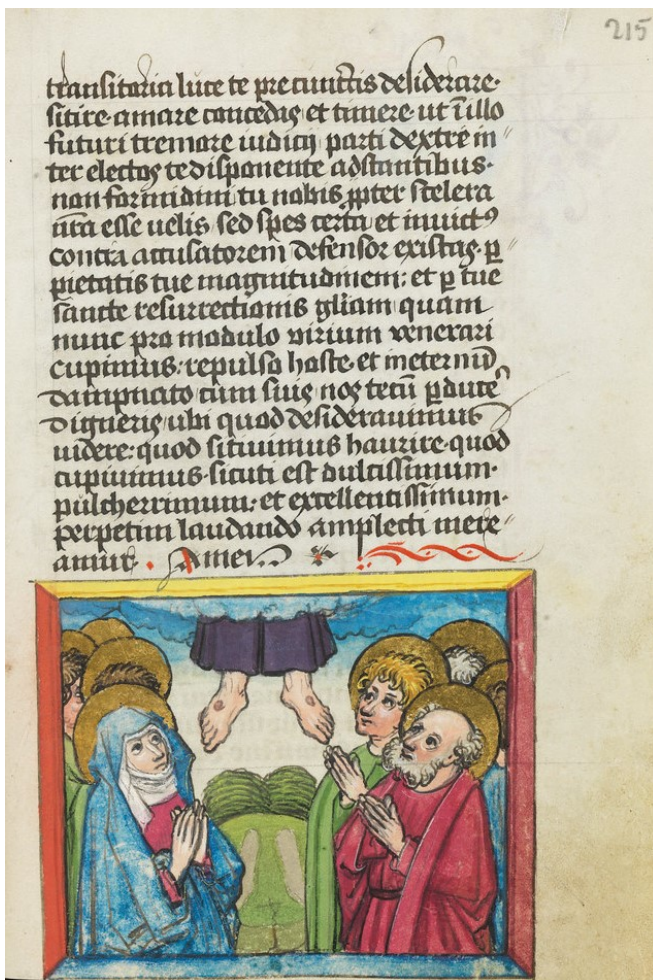 215
transitoria luce te pre cunctis desiderare·
sitire·amare concedas et timere·ut ī illo
futuri tremore iudicij parti dextre in〃
ter electos te disponente adstantibus·
non formidini tu nobis ꝓpter scelera
nr̄a esse uelis sed spes certa et inuictꝰ
contra accusatorem defensor existas·ꝑ
pietatis tue magnitudinem: et ꝑ tue
sancte resurrectionis gl̄iam quam
nunc pro modulo virium venerari
cupimus: repulso hoste·et in eternū
dampnato cum suis nos tecū ꝑduce᷒
digneris ubi quod desiderauimus
uidere: quod sitiuimus haurire·quod
cupiuimus·sicuti est dulcissimum·
pulcherrimum: et excellentissimum·
perpetim laudando amplecti mere〃
amur· Amen